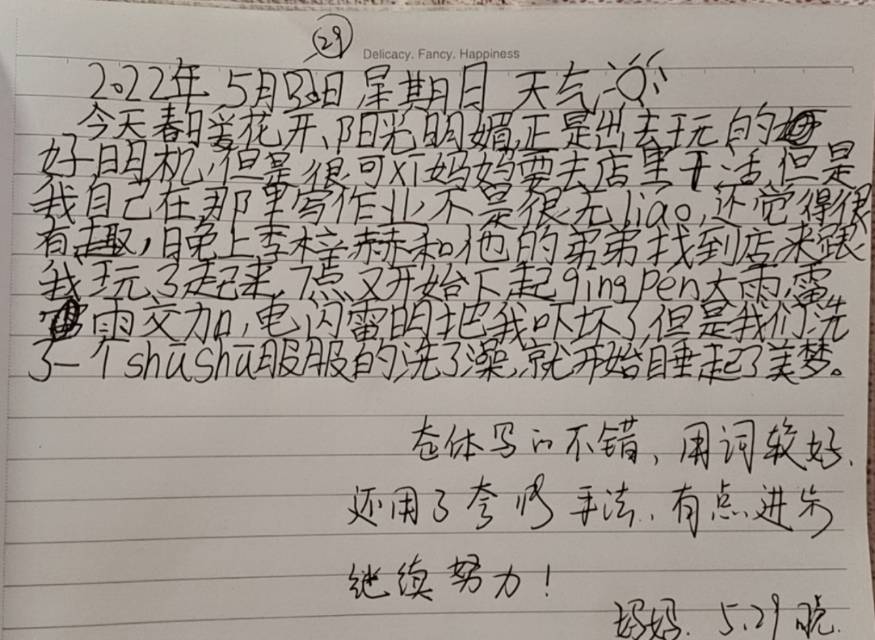 29
Delicacy. Fancy. Happiness
2022年 5月30日 星期日 天气
今天春日暖花开、阳光明媚,正是出去玩的
好时机,但是很可惜妈妈要去店里干活,但是
我自己在那里写作业不是很无liao,还觉得很
有趣,晚上李梓赫和他的弟弟找到店来跟
我玩了起来,7点又开始下起qingpen大雨,雷
雨交加,电闪雷鸣把我吓坏了,但是我们洗
了一个shūshū服服的洗了澡,就开始睡起了美梦。
总体写的不错、用词较好、
还用了夸修手法、有点进步
继续努力!
妈妈. 5.29晚.